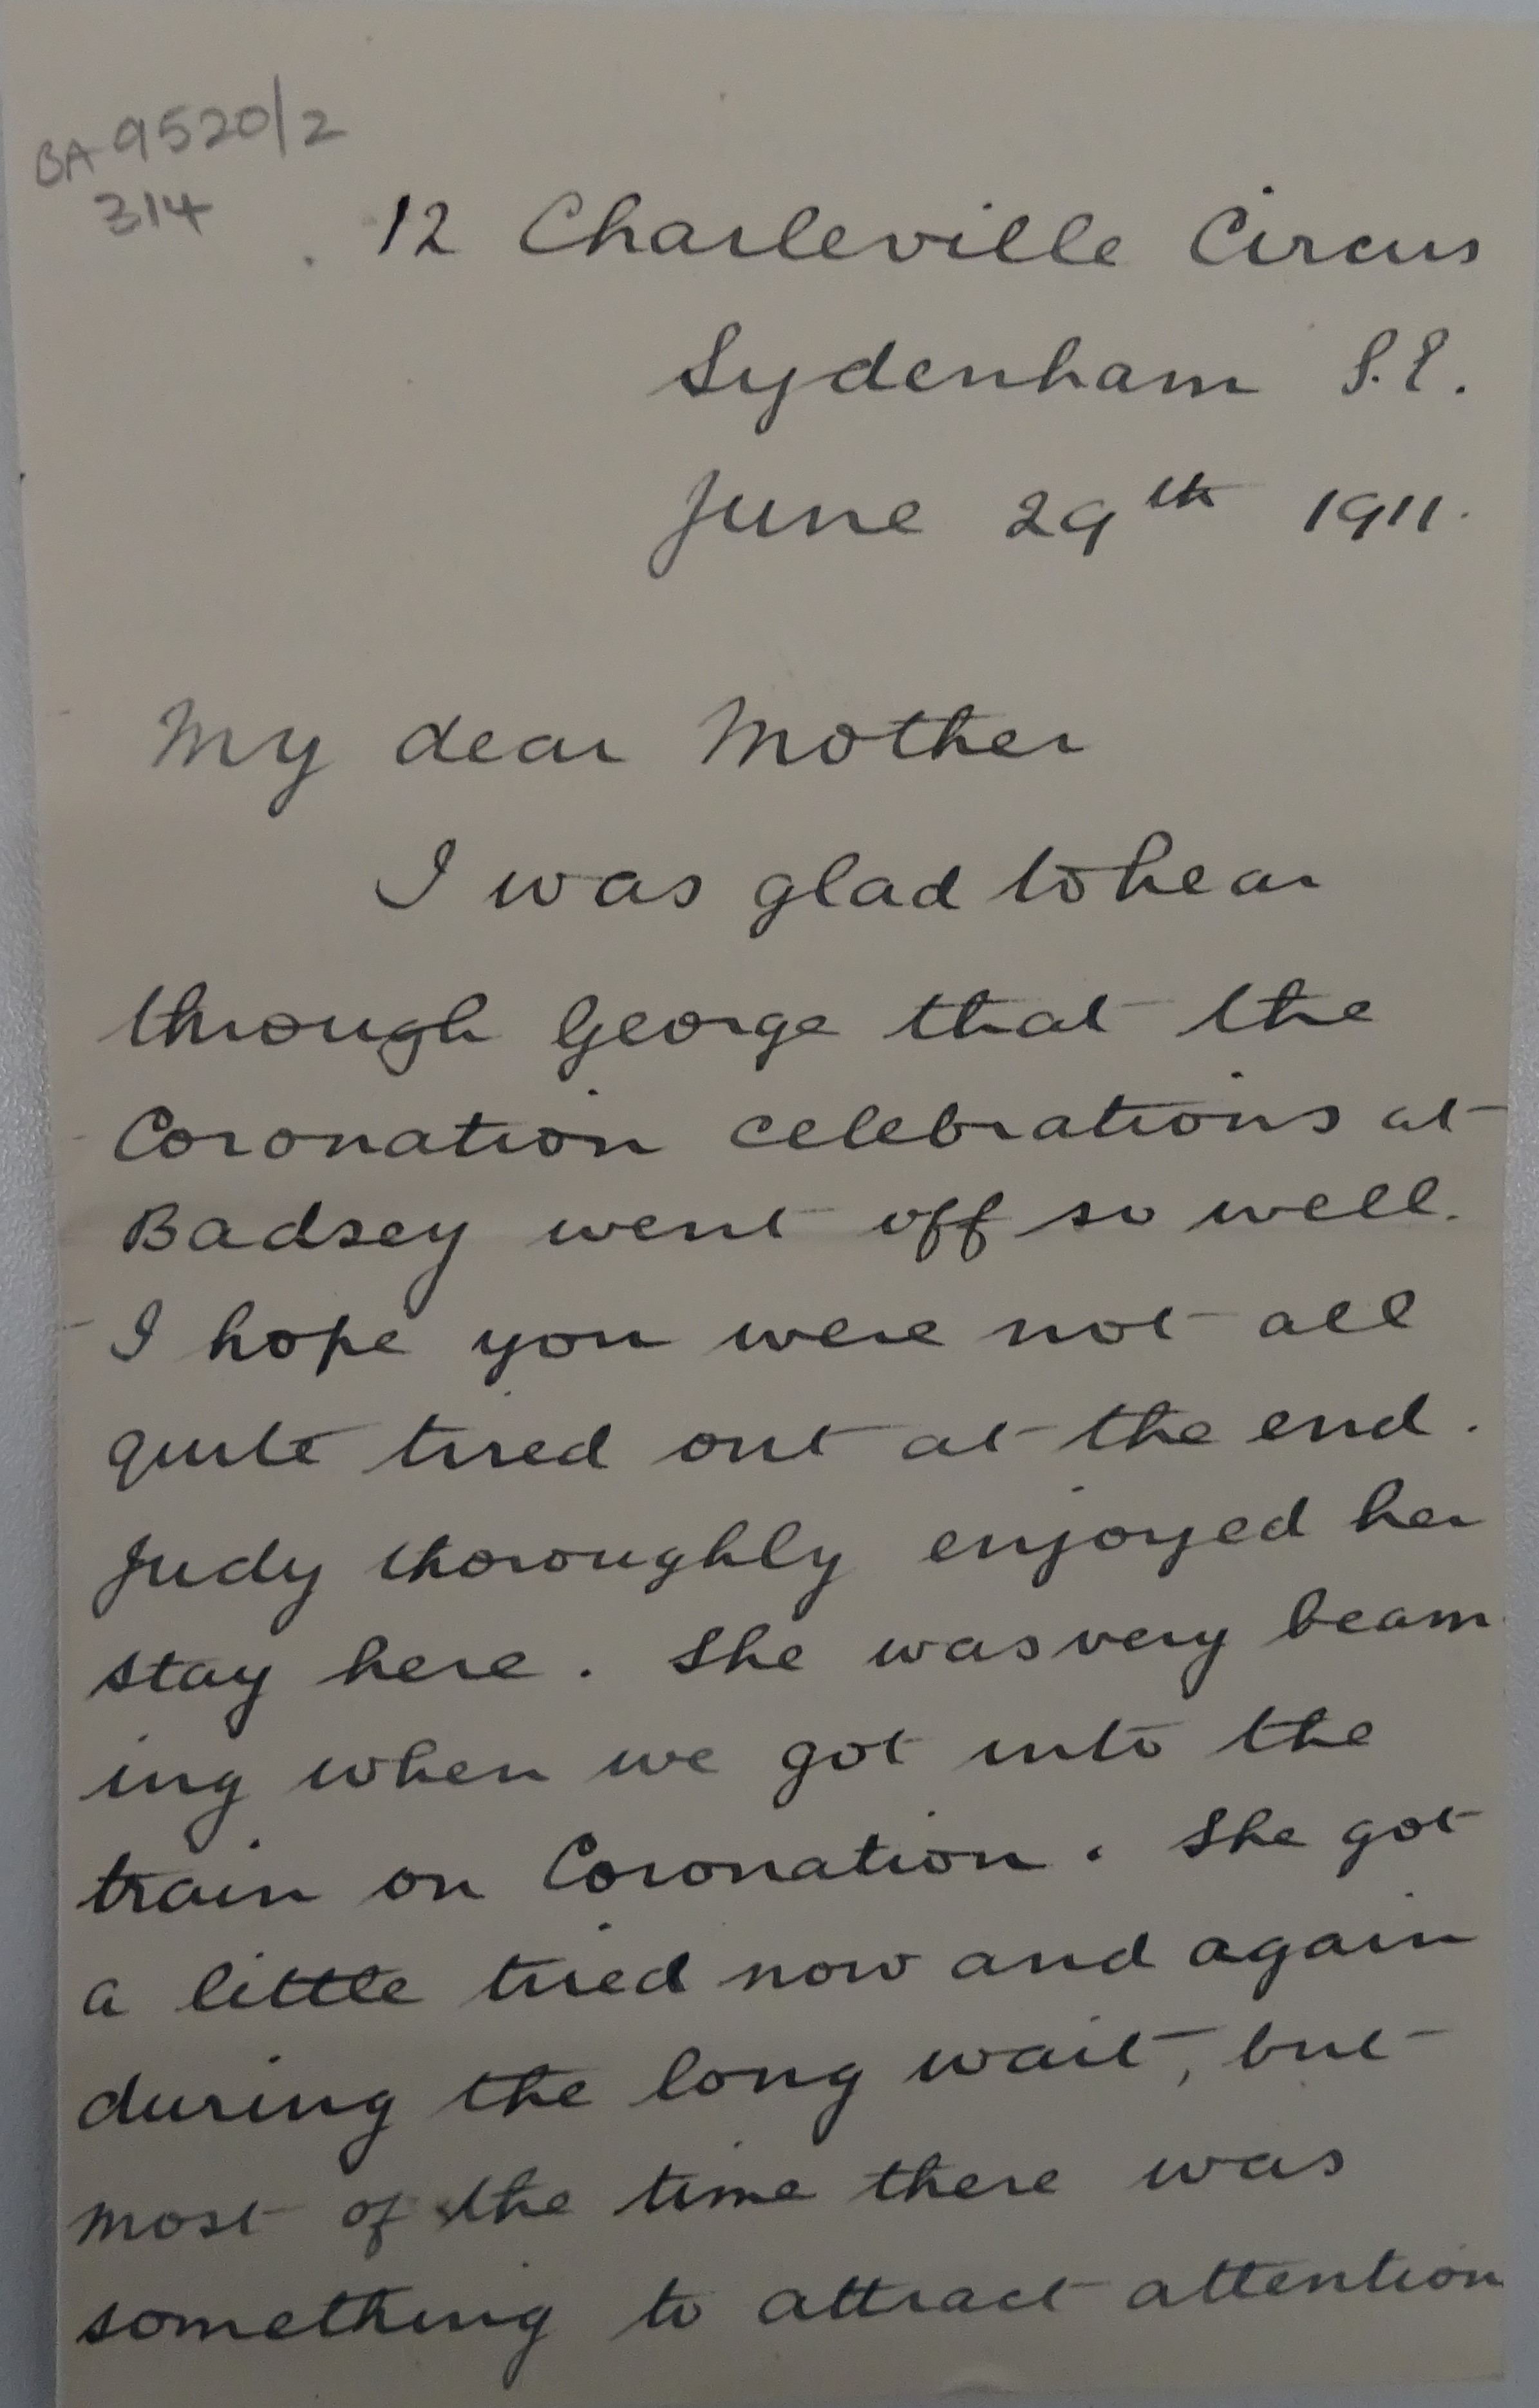 BA 9520/2
314
12 Charleville Circus
Sydenham S.E.
June 29th 1911.
My dear Mother
I was glad to hear
through George that the
Coronation celebrations at
Badsey went off so well.
I hope you were not all
quite tired out at the end.
Judy thoroughly enjoyed her
stay here. She was very beam
ing when we got into the
train on Coronation. She got
a little tired now and again
during the long wait, but
most of the time there was
something to attract attention